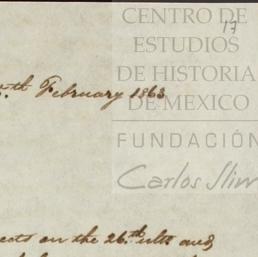 CENTRO DE
17
ESTUDIOS
DE HISTORIA
th February 1863
DE MEXICO
FUNDACIÓN
Carlos Slim
on the 26.th ulto and